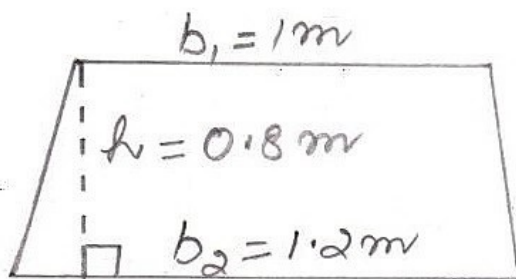 b₁ = 1m
h = 0.8 m
b₂ = 1.2m